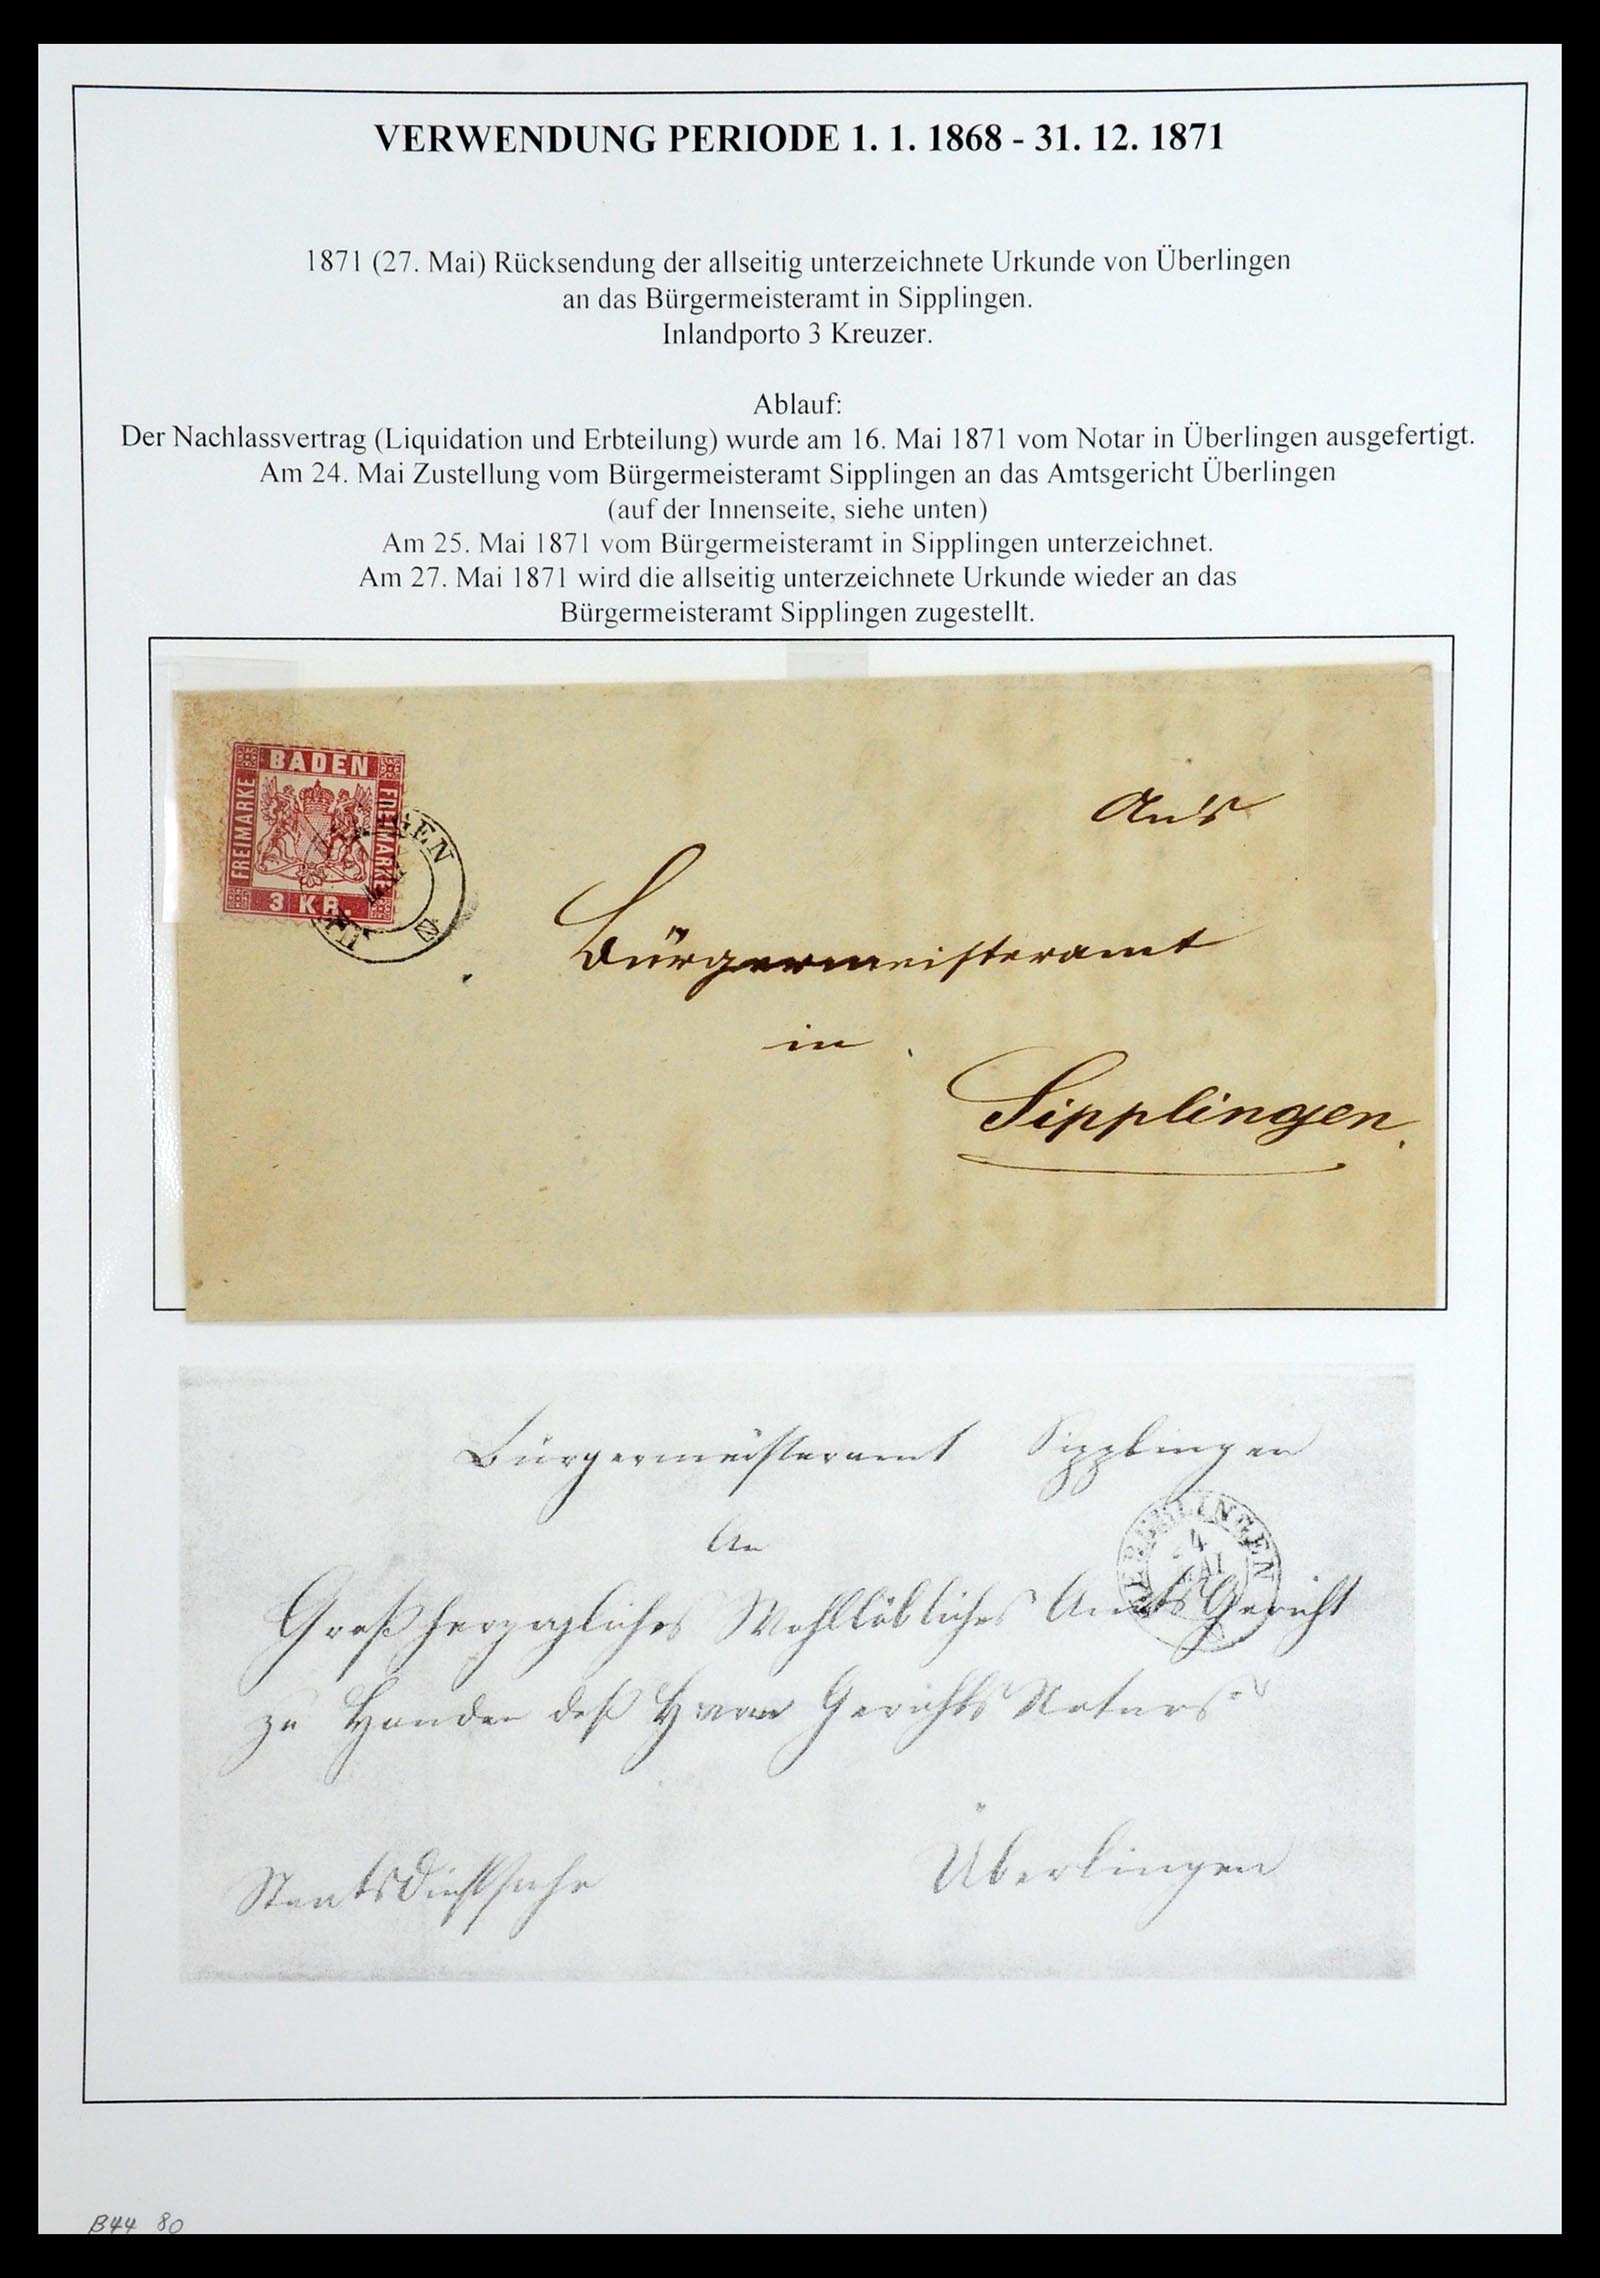 VERWENDUNG PERIODE 1. 1. 1868 - 31. 12. 1871
1871 (27. Mai) Rücksendung der allseitig unterzeichnete Urkunde von Überlingen
an das Bürgermeisteramt in Sipplingen.
Inlandporto 3 Kreuzer.
Ablauf:
Der Nachlassvertrag (Liquidation und Erbteilung) wurde am 16. Mai 1871 vom Notar in Überlingen ausgefertigt.
Am 24. Mai Zustellung vom Bürgermeisteramt Sipplingen an das Amtsgericht Überlingen
(auf der Innenseite, siehe unten)
Am 25. Mai 1871 vom Bürgermeisteramt in Sipplingen unterzeichnet.
Am 27. Mai 1871 wird die allseitig unterzeichnete Urkunde wieder an das
Bürgermeisteramt Sipplingen zugestellt.
BADEN
FREIMARKE
FREIMARKE
3 KR.
Bürgermeisteramt
in
Sipplingen.
Bürgermeisteramt Sipplingen
An
Großherzogliches Wohllöbliches Amts Gericht
zu Handen deß Herrn Gerichts Notars
Überlingen
StaatsDienstsache
B44 80